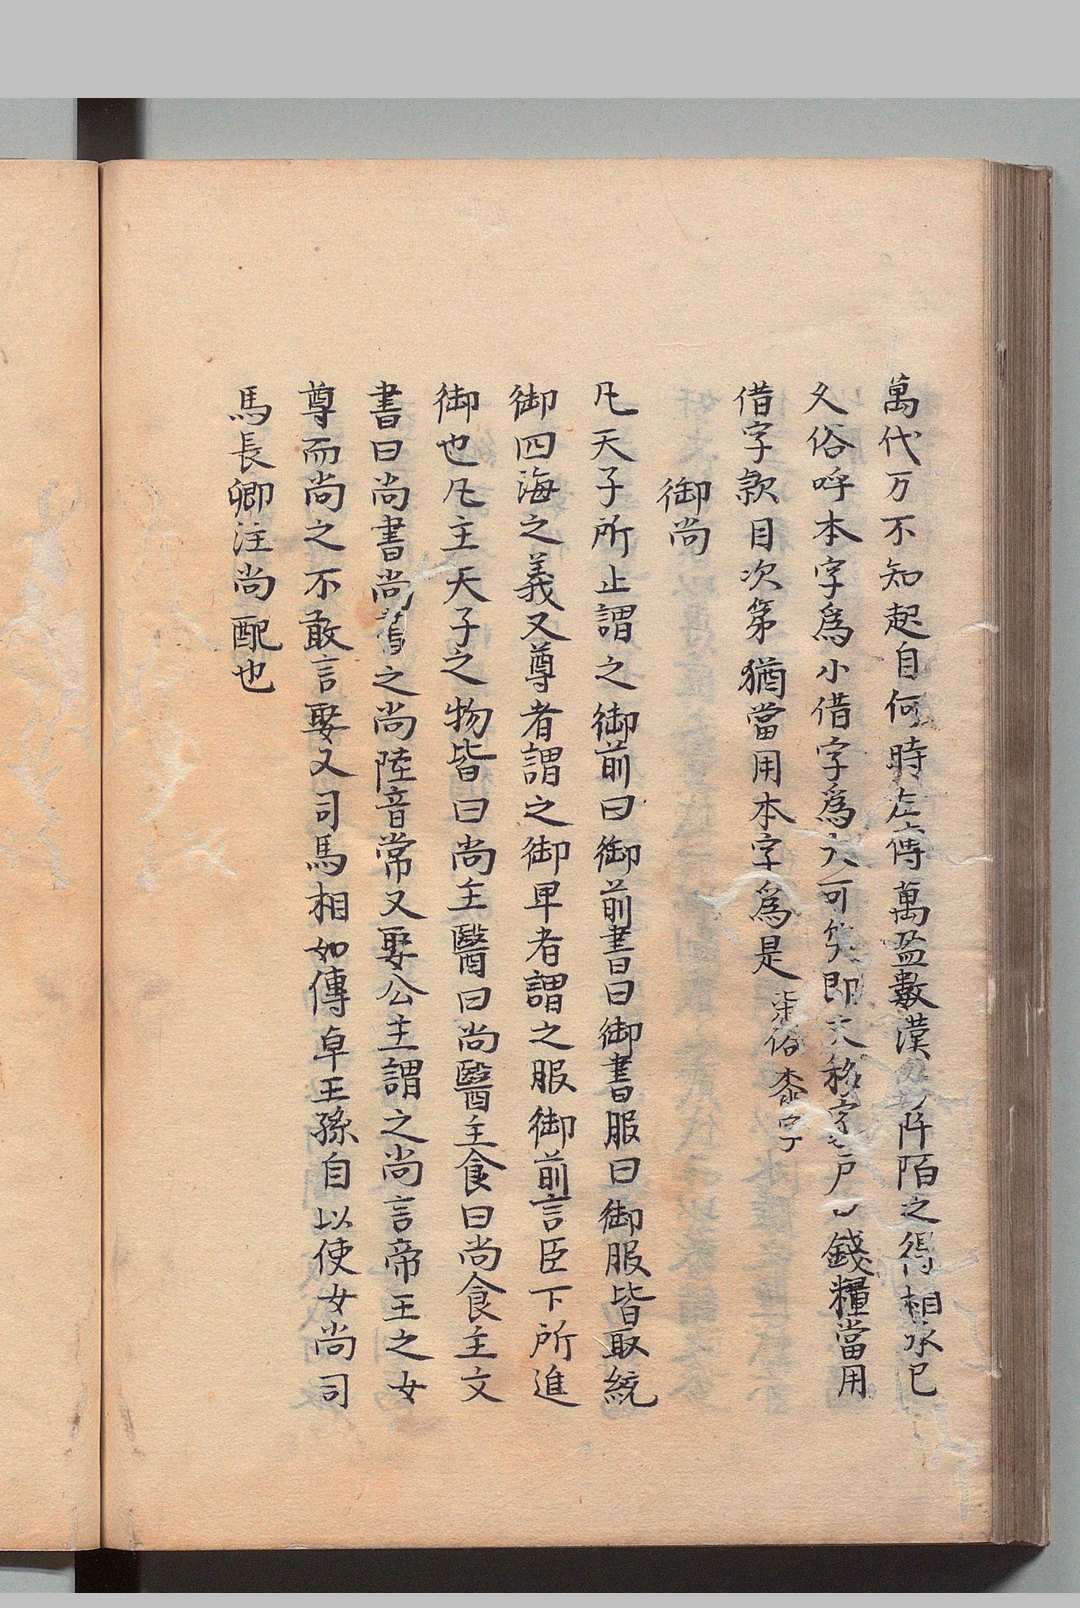 萬代万不知起自何時左傳萬盈數漢阡陌之得相承已
久俗呼本字爲小借字爲大可笑即文移字戶口錢糧當用
借字款目次第猶當用本字爲是柒俗桼字
御尚
凡天子所止謂之御前曰御前書曰御書服曰御服皆取統
御四海之義又尊者謂之御卑者謂之服御前言臣下所進
御也凡主天子之物皆曰尚主醫曰尚醫主食曰尚食主文
書曰尚書尚舊之尚陸音常又娶公主謂之尚言帝王之女
尊而尚之不敢言娶又司馬相如傳卓王孫自以使女尚司
馬長卿注尚配也